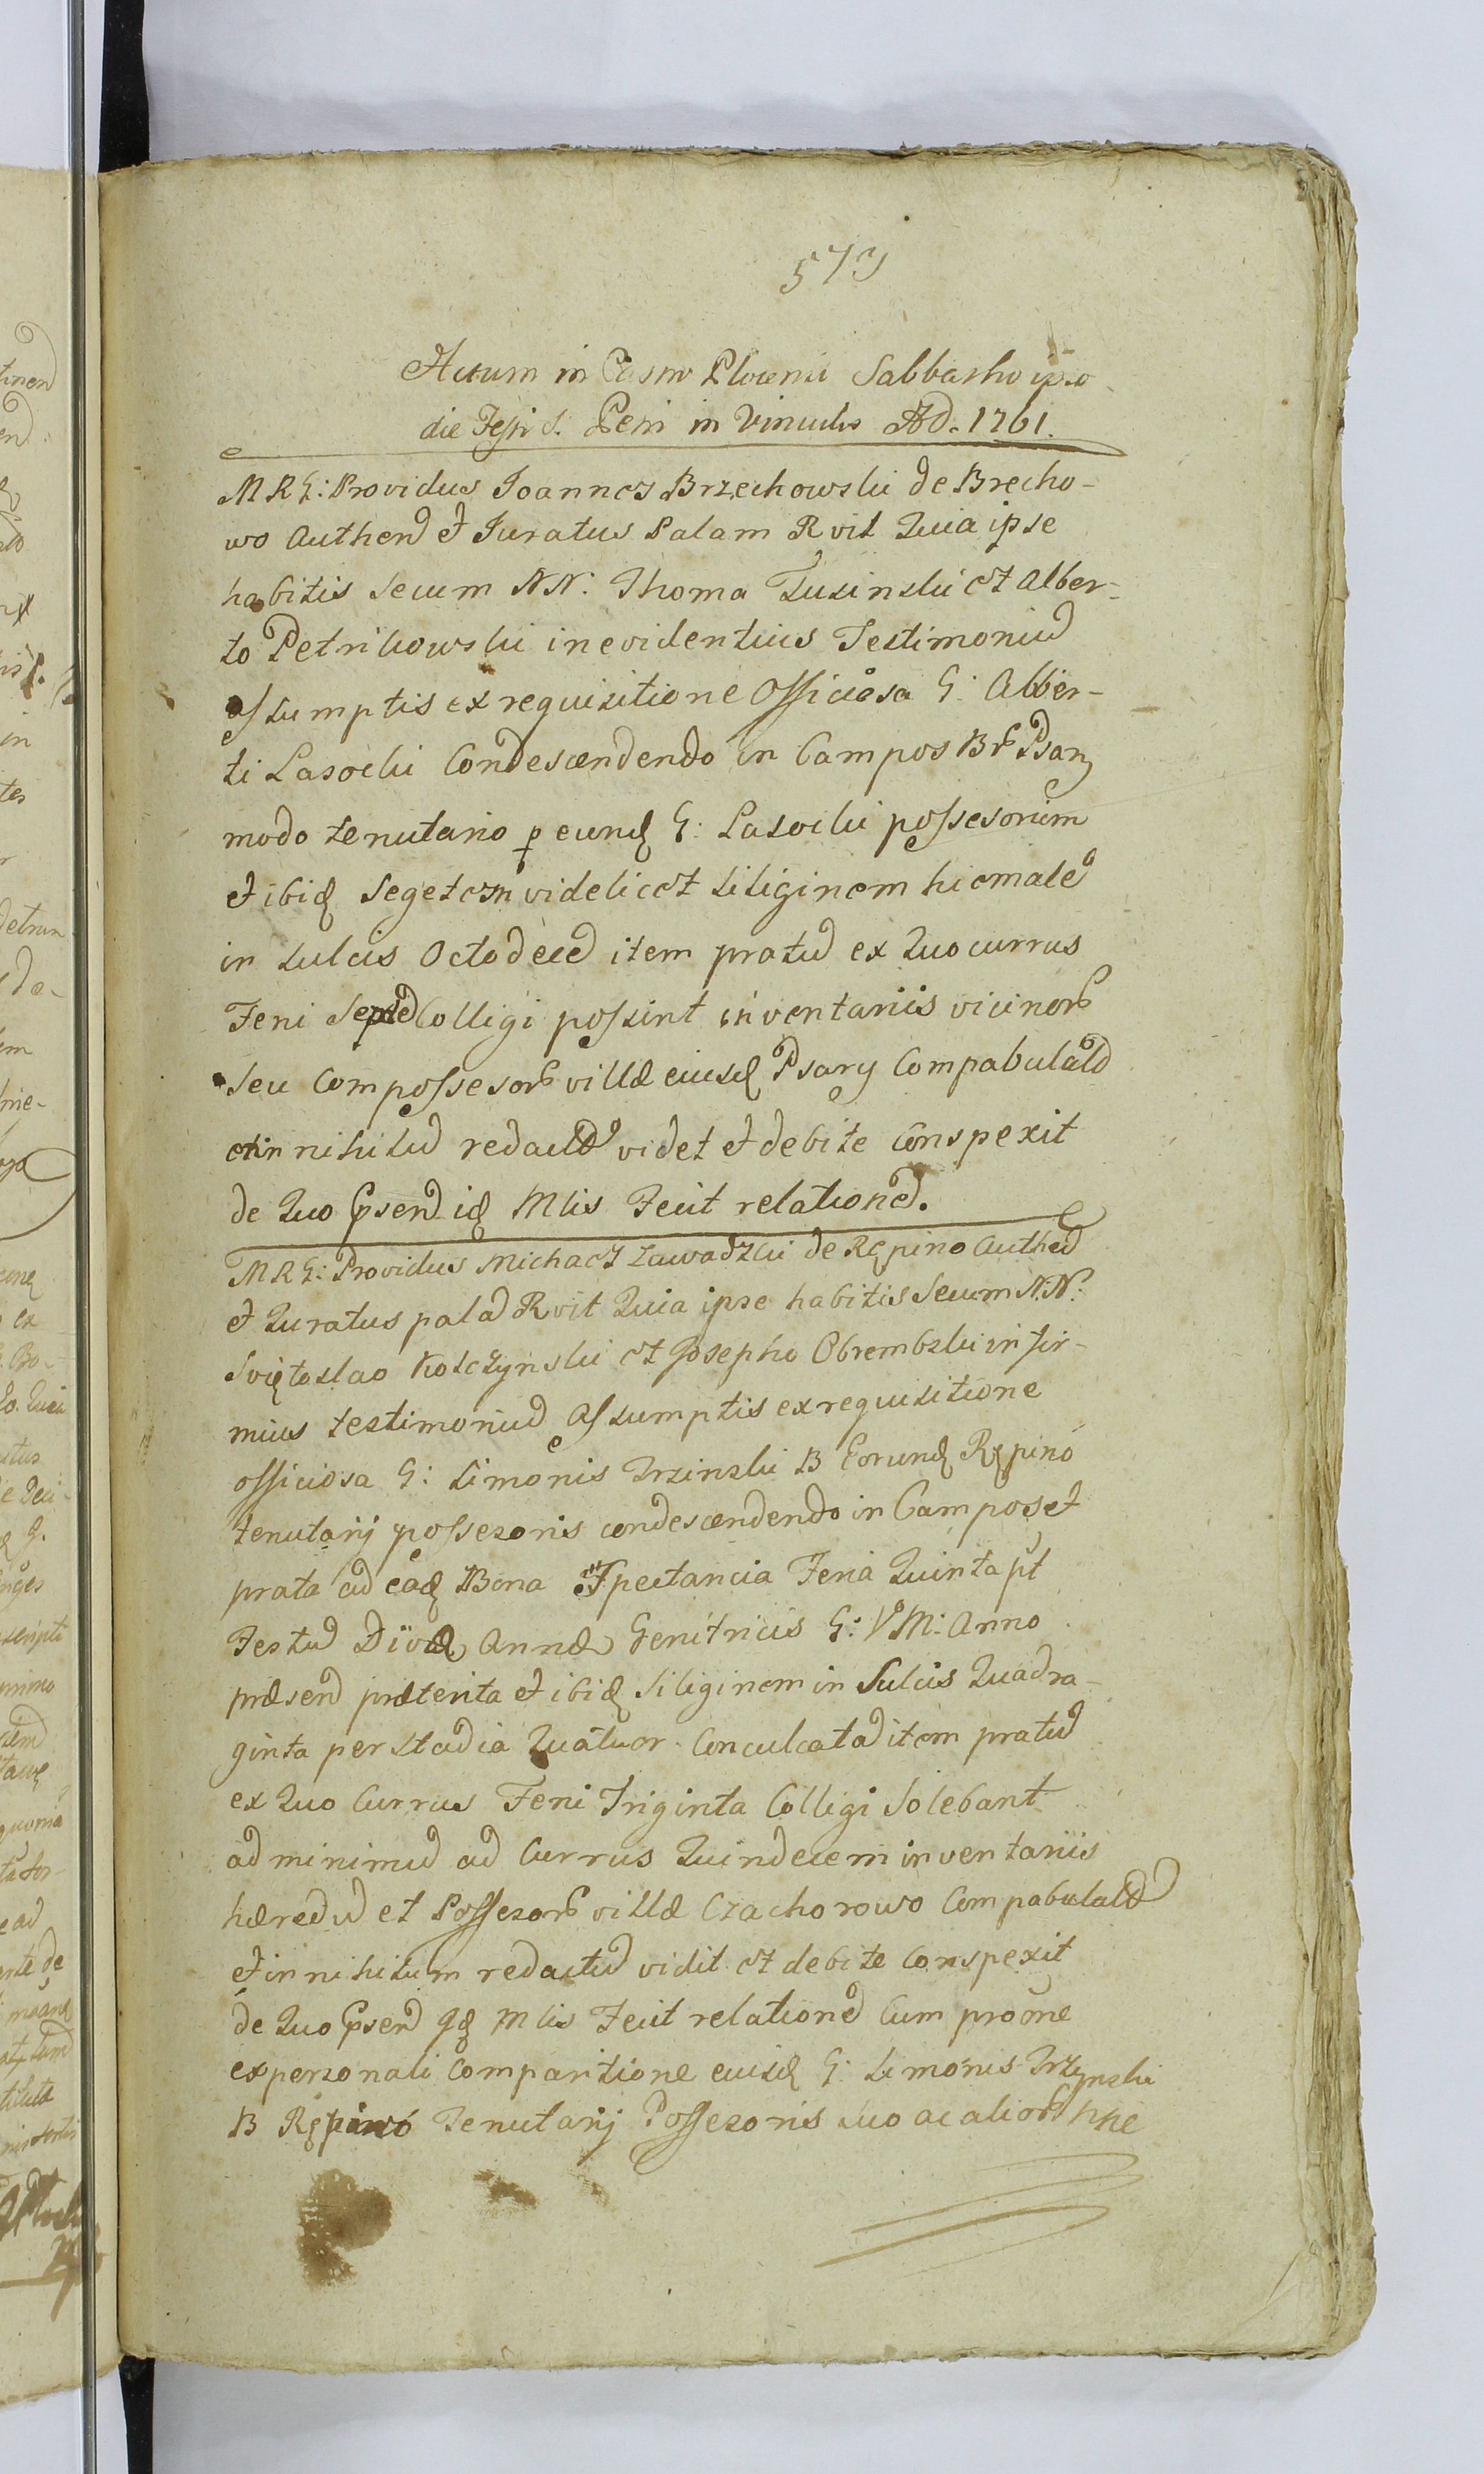 573
Actum in Castro Plocensi Sabbatho ipso
die Festi S. Petri in Vinculis AD. 1761.
MRG: Providus Joannes Brzechowski de Brecho-
wo Authen et Juratus Palam Rvit Quia ipse
habitis secum NN: Thoma Tusinski et Alber-
to Petrikowski in evidentius Testimoniu
assumptis ex requisitione Officiosa G: Alber-
ti Lasocki Condescendendo in Campos Br Psary
modo tenutario p eund G: Lasocki possesorium
et ibid Segetem videlicet siliginem hiemale
in sulcis Octodece item pratu ex Quo currus
Feni Septe Colligi possint inventariis vicinor
seu Compossesor villæ eiusd Psary Compabulat
et in nihilu redact videt et debite Conspexit
de Quo Psen id Mlis Fecit relatione.
MRG: Providus Michael Zawadzki de Rępino Authe
et Juratus pala Rvit Quia ipse habitis Secum N.N:
Sviętoslao Kosczynski et Josepho Obrembski in fir-
mius testimoniu assumptis ex requisitione
officiosa G: Simonis Trzinski B Eorund Rępino
tenutarij possesoris condescendendo in Campos et
prata ad ead Bona Spectancia Feria Quinta pt
Festu Divæ Annæ Genitricis G: V M: Anno
præsen præterita et ibid Siliginem in Sulcis Quadra-
ginta per stadia Quatuor Conculcata item pratu
ex Quo Currus Feni Triginta Colligi Solebant
ad minimu ad Currus Quindecem inventariis
hæredu et Possesor villæ Czachorowo Compabulat
et in nihilum redactu vidit et debite Conspexit
de Quo Psen Id Mlis Fecit relatione Cum prome
ex personali Comparitione eiusd G: Simonis Trzynski
B Rępino Tenutarij Possesoris suo ac alior nne